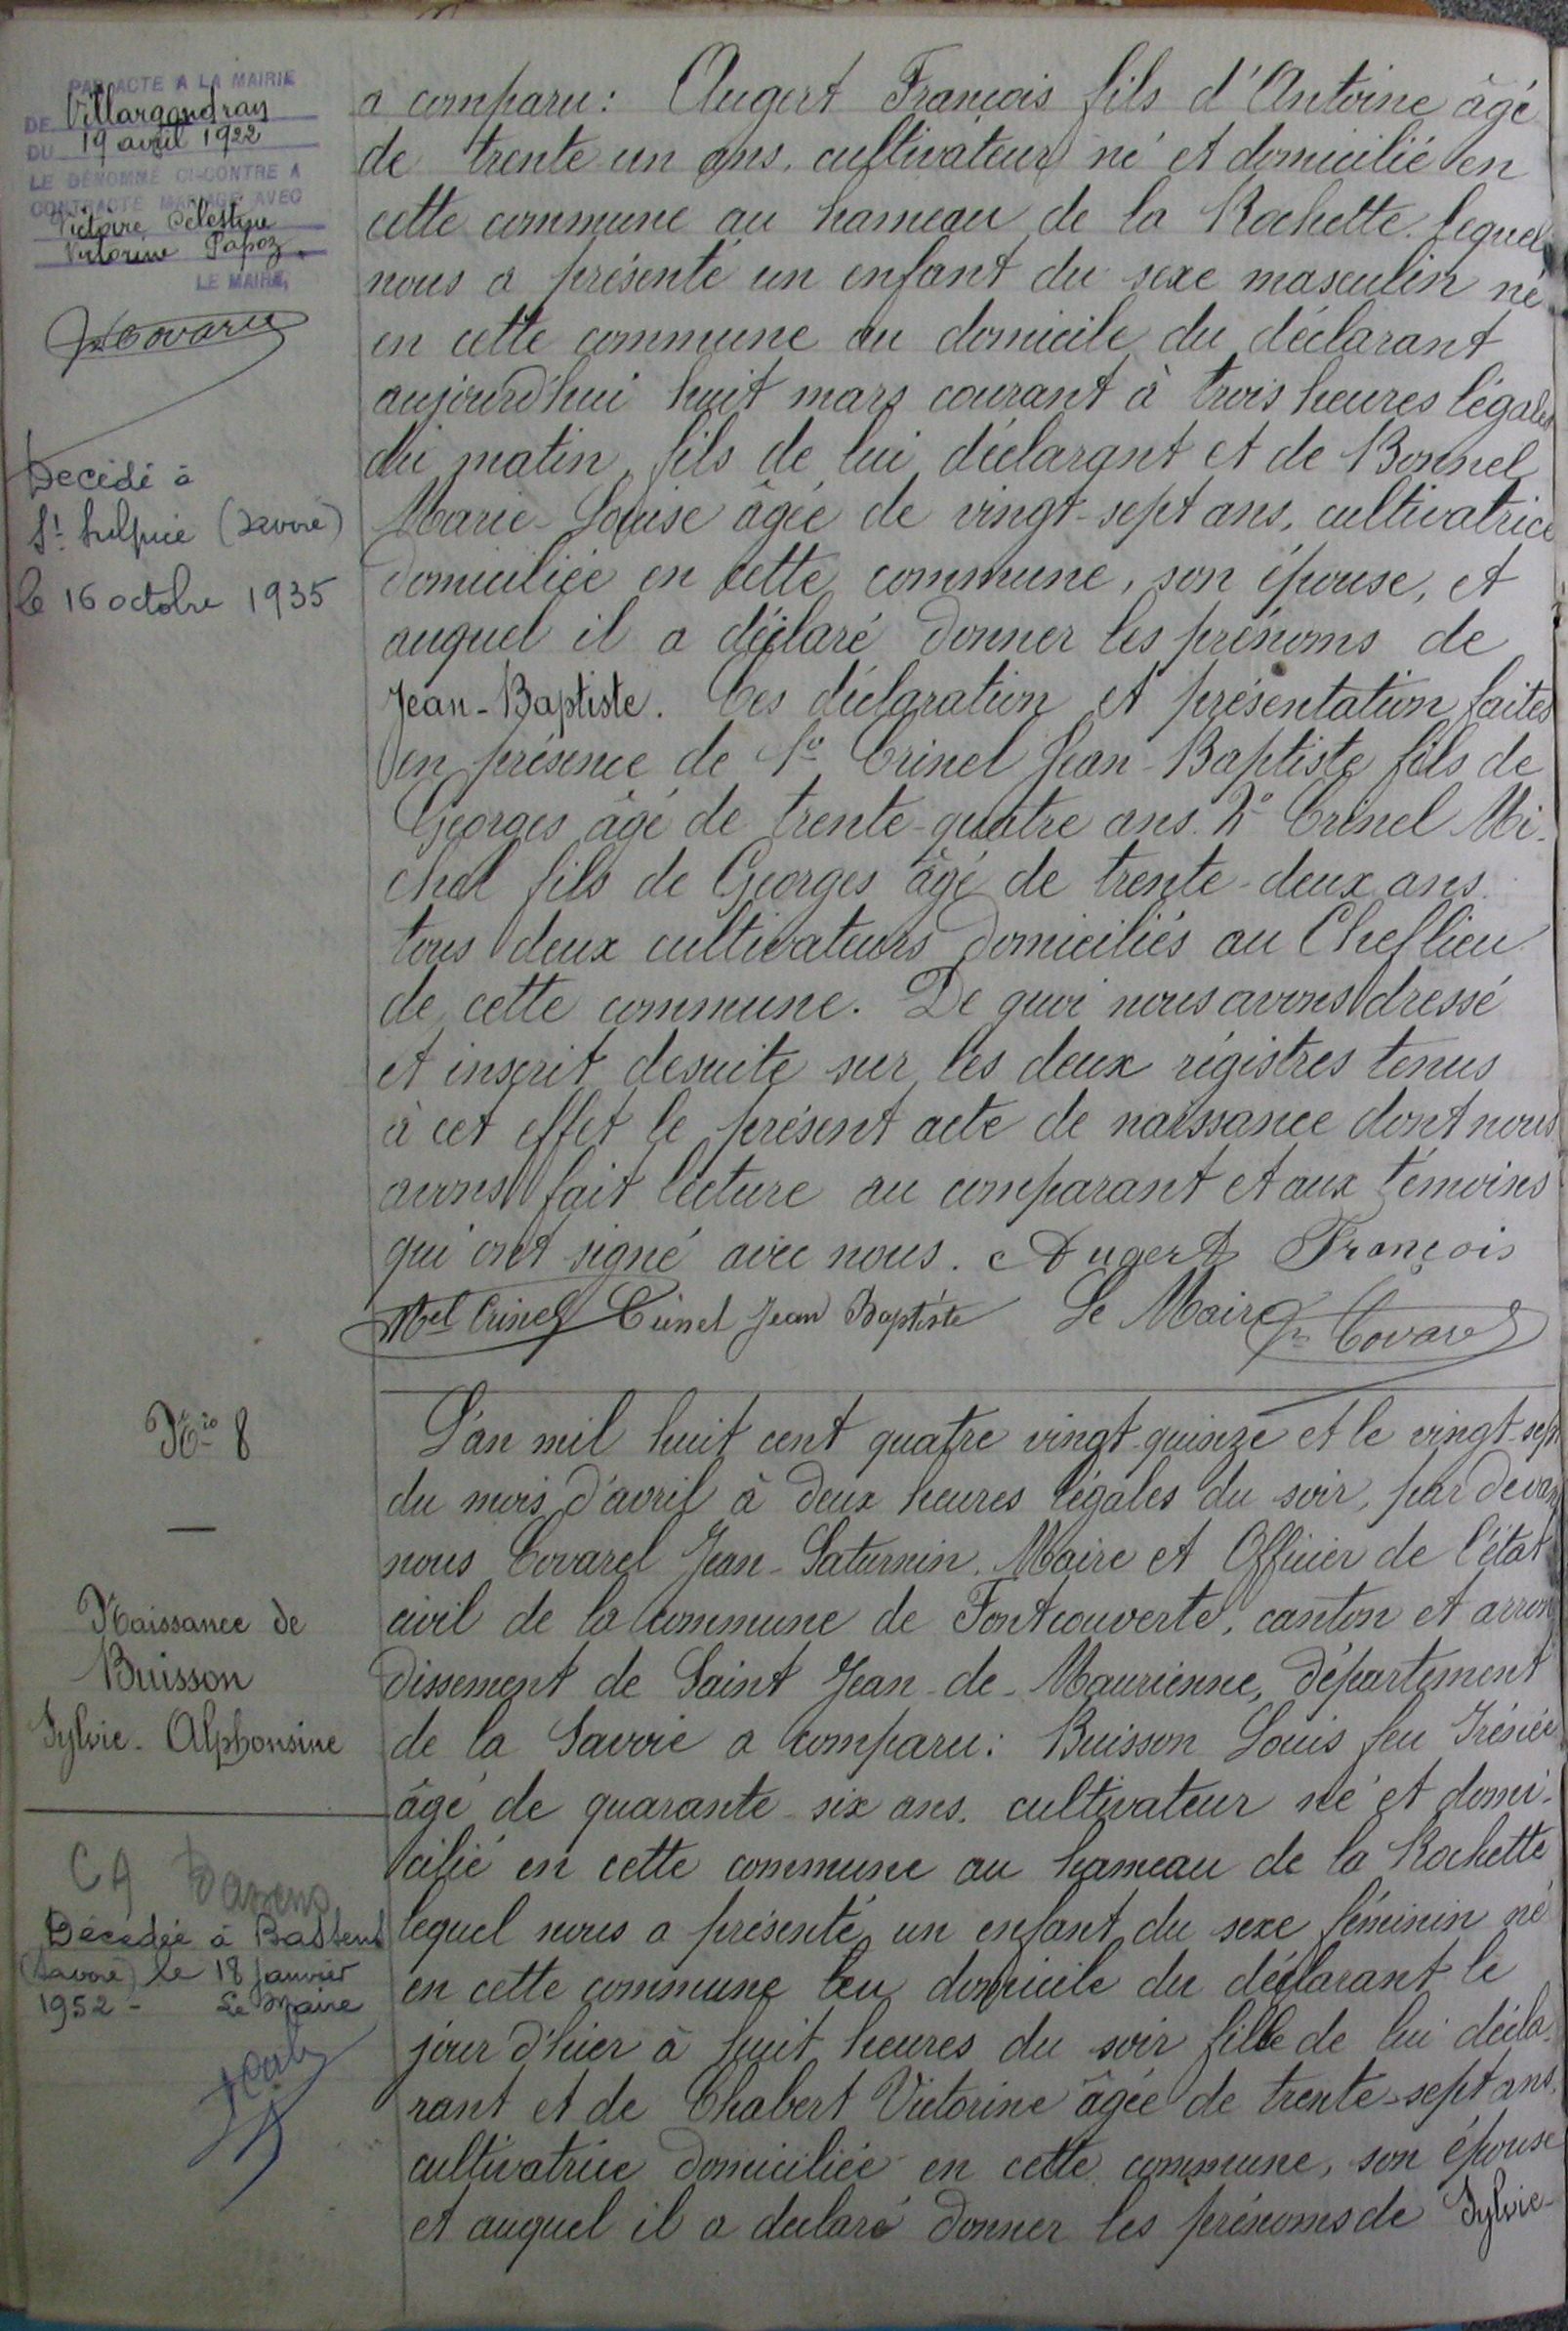 PAR ACTE A LA MAIRIE
DE Villargondran
DU 19 avril 1922
LE DÉNOMMÉ CI-CONTRE A
CONTRACTÉ MARIAGE AVEC
Victoire Célestine
Victorine Papoz
LE MAIRE,
Jn Covarel
Decédé à
St Sulpice (Savoie)
le 16 octobre 1935
a comparu : Augert François fils d'Antoine âgé
de trente un ans, cultivateur né et domicilié en
cette commune au hameau de la Rochette lequel
nous a présenté un enfant du sexe masculin né
en cette commune au domicile du déclarant
aujourd'hui huit mars courant à trois heures légales
du matin, fils de lui déclarant et de Bonnel
Marie-Louise âgée de vingt-sept ans, cultivatrice
domiciliée en cette commune, son épouse, et
auquel il a déclaré donner les prénoms de
Jean-Baptiste. Ces déclaration et présentation faites
en présence de 1° Crinel Jean-Baptiste fils de
Georges âgé de trente-quatre ans. 2° Crinel Mi-
chel fils de Georges âgé de trente-deux ans
tous deux cultivateurs domiciliés au Cheflieu
de cette commune. De quoi nous avons dressé
et inscrit desuite sur les deux régistres tenus
à cet effet le présent acte de naissance dont nous
avons fait lecture au comparant et aux témoins
qui ont signé avec nous. Augert François
Mel Crinel Crinel Jean Baptiste Le Maire Jn Covarel
Nro 8
Naissance de
Buisson
Sylvie-Alphonsine
CA Bassens
Décédée à Bassens
(Savoie) le 18 Janvier
1952 - Le Maire
L'an mil huit cent quatre vingt quinze et le vingt-sept
du mois d'avril à deux heures légales du soir, par devant
nous Covarel Jean-Saturnin, Maire et Officier de l'état
civil de la commune de Fontcouverte, canton et arron
dissement de Saint Jean-de-Maurienne, département
de la Savoie a comparu : Buisson Louis feu Irénée
âgé de quarante-six ans, cultivateur né et domi-
cilié en cette commune au hameau de la Rochette
lequel nous a présenté un enfant du sexe féminin né
en cette commune au domicile du déclarant le
jour d'hier à huit heures du soir fille de lui décla-
rant et de Chabert Victorine âgée de trente-sept ans,
cultivatrice domiciliée en cette commune, son épouse
et auquel il a declaré donner les prénoms de Sylvie-